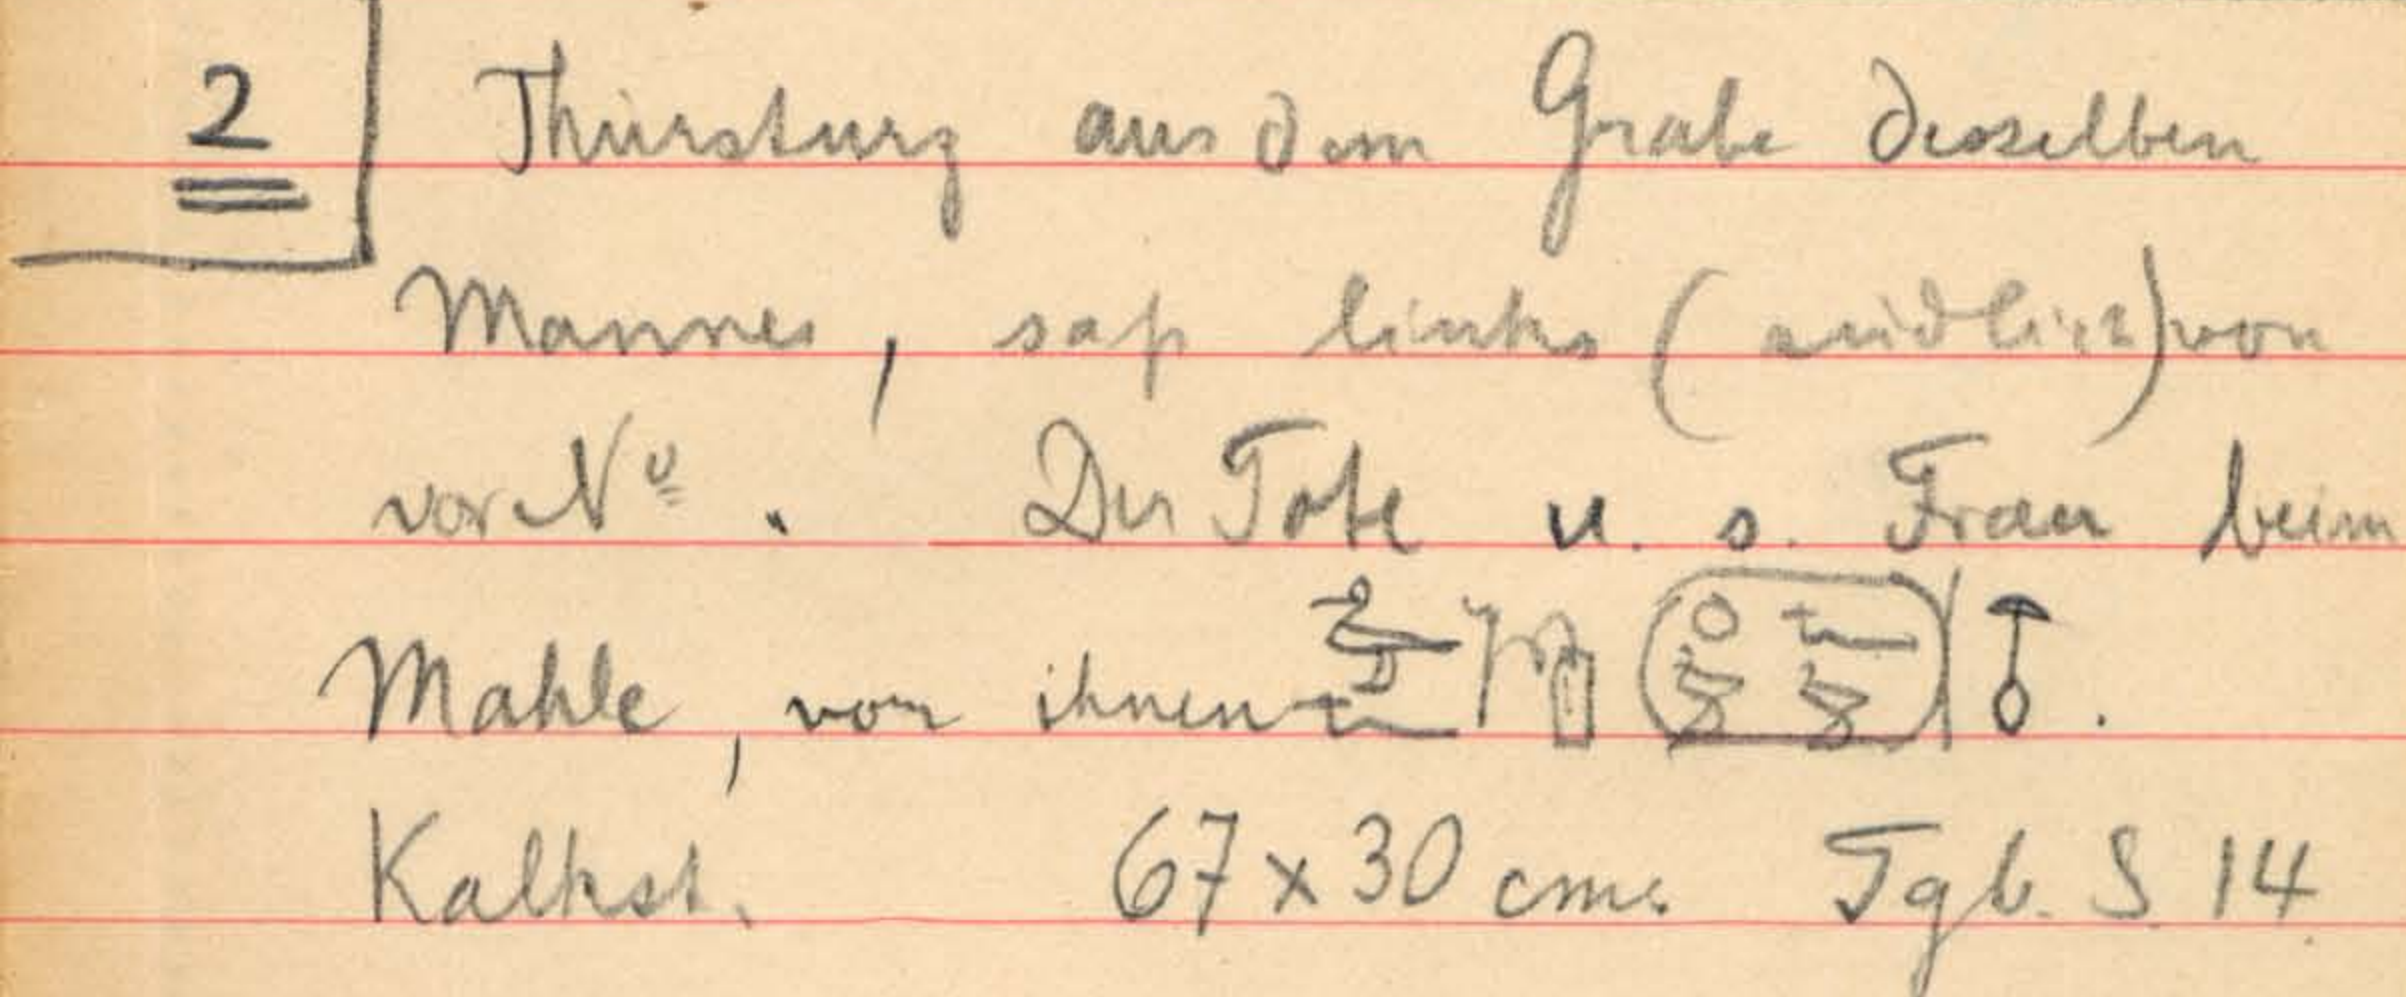 2 Thürsturz aus dem Grabe desselben
Mannes, saß links (südlich) von
vor. No. Der Tote u. s. Frau beim
Mahle, vor ihnen
Kalkst. 67 x 30 cm. Tgb. S 14